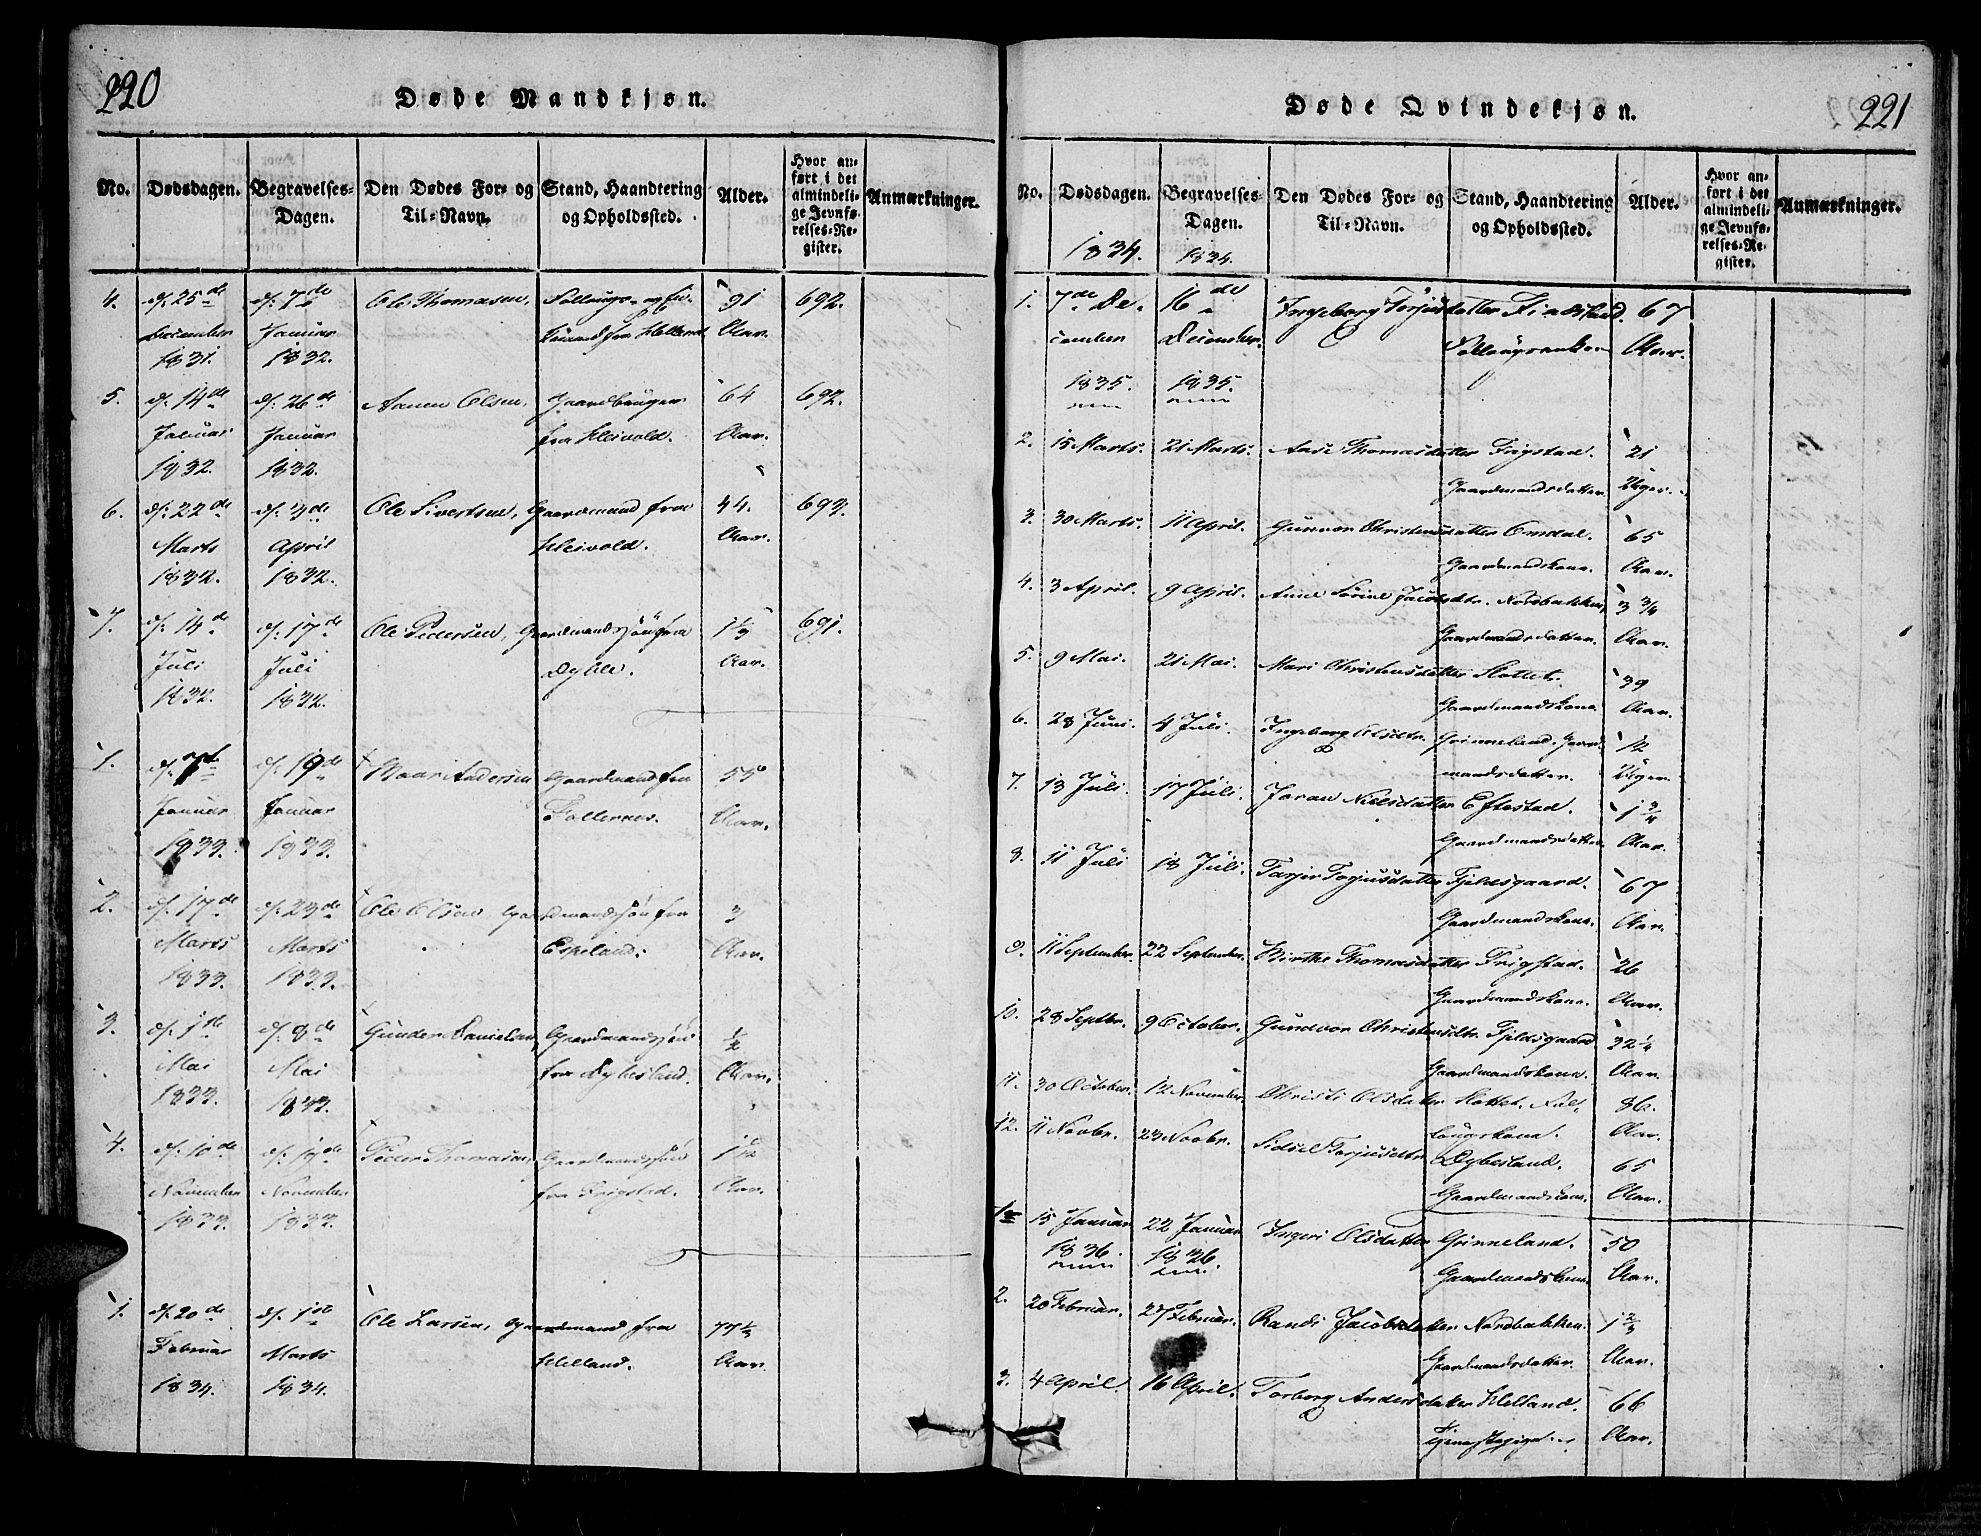 220
Døde Mandkjøn.
No. Dødsdagen. Begravelses-Dagen. Den Dødes For- og Til-Navn. Stand, Haandtering og Opholdssted. Alder. Hvor anført i det almindelige Jevnførelses-Register. Anmærkninger.
4. d. 25de d. 7de Ole Thomasen, 91 692.
December Januar fra Helland Aar.
1831. 1832.
5. d. 14de d. 26de Aanen Olsen, Gaardbruger 64 692.
Januar Januar fra Kleivold. Aar.
1832. 1832.
6. d. 22de d. 3de Ole Sivertsen, Gaardmand fra 44. 693.
Marts April Kleivold. Aar.
1832. 1832.
7. d. 14de d. 17de Ole Pedersen, Gaardmandssøn fra 1 1/3 691.
Juli Juli Aar.
1832. 1832.
1. d. 7de d. 19de Andersen Gaardmand fra 55
Januar Januar Aar.
1833. 1833.
2. d. 17de d. 23de Ole Olsen Gaardmandssøn fra 3
Marts Marts Espeland. Aar.
1833. 1833.
3. d. 1ste d. 8de Gunder Danielsen, Gaardmandssøn 1/2
Mai Mai fra Dybesland. Aar.
1833. 1833.
4. d. 10de d. 17de Peder Thomasen, Gaardmandssøn 1 1/2
November November fra Frigstad. Aar.
1833. 1833.
1. d. 20de d. 1ste Ole Larsen, Gaardmand fra 77 1/2
Februar Marts Helland. Aar.
1834. 1834.
221
Døde Qvindekjøn.
No. Dødsdagen. Begravelses-Dagen. Den Dødes For- og Til-Navn. Stand, Haandtering og Opholdssted. Alder. Hvor anført i det almindelige Jevnførelses-Register. Anmærkninger.
1834. 1834.
1. 7de De- 16de Ingeborg Torjusdatter Findsland. 67
cember December. Aar.
1835. 1835.
2. 15 Marts. 21 Marts. Aase Thomasdatter Frigstad. 21
Gaardmandsdatter. Uger.
3. 30 Marts. 11 April. Gunvor Christensdatter Omdal. 65
Gaardmandskone. Aar.
4. 3 April. 9 April. Anne Sørine Jacobsdtr. Nordbakken, 3 3/4
Gaardmandsdatter. Aar.
5. 9 Mai. 21 Mai. Mari Christensdatter Slottet. 39
Gaardmandskone. Aar.
6. 28 Juni. 4 Juli. Ingeborg Olsdtr. Grinneland. Gaard- 12
mandsdatter. Uger.
7. 13 Juli. 17 Juli. Joran Nielsdatter Eftestad. 1 3/4
Gaardmandsdatter. Aar.
8. 11 Juli 18 Juli. Tarjer Torjusdatter Fjeldsgaard. 67
Gaardmandskone. Aar.
9. 11 September. 22 September. Birthe Thomasdatter Frigstad. 26
Gaardmandskone. Aar.
10. 28 Septbr. 9 October. Gundvor Christensdtr. Fjeldsgaard 32 1/4
Gaardmandskone. Aar.
11. 30 October. 12 November. Christi Olsdatter Slottet. Føl- 86.
laugskone. Aar.
12. 11 Novbr. 23 Novbr. Sidsel Torjusdtr. Dybesland. 65
Gaardmandskone. Aar.
1 15 Januar 22 Januar Ingeri Olsdatter Grinneland. 50
1836. 1836. Gaardmandskone. Aar.
2. 20 Februar. 27 Februar. Randi Jacobsdatter Nordbakken. 1 2/3
Gaardmandsdatter. Aar.
3. 4 April. 16 April. Torborg Andersdatter Helland. 66
Tjenestepige. Aar.